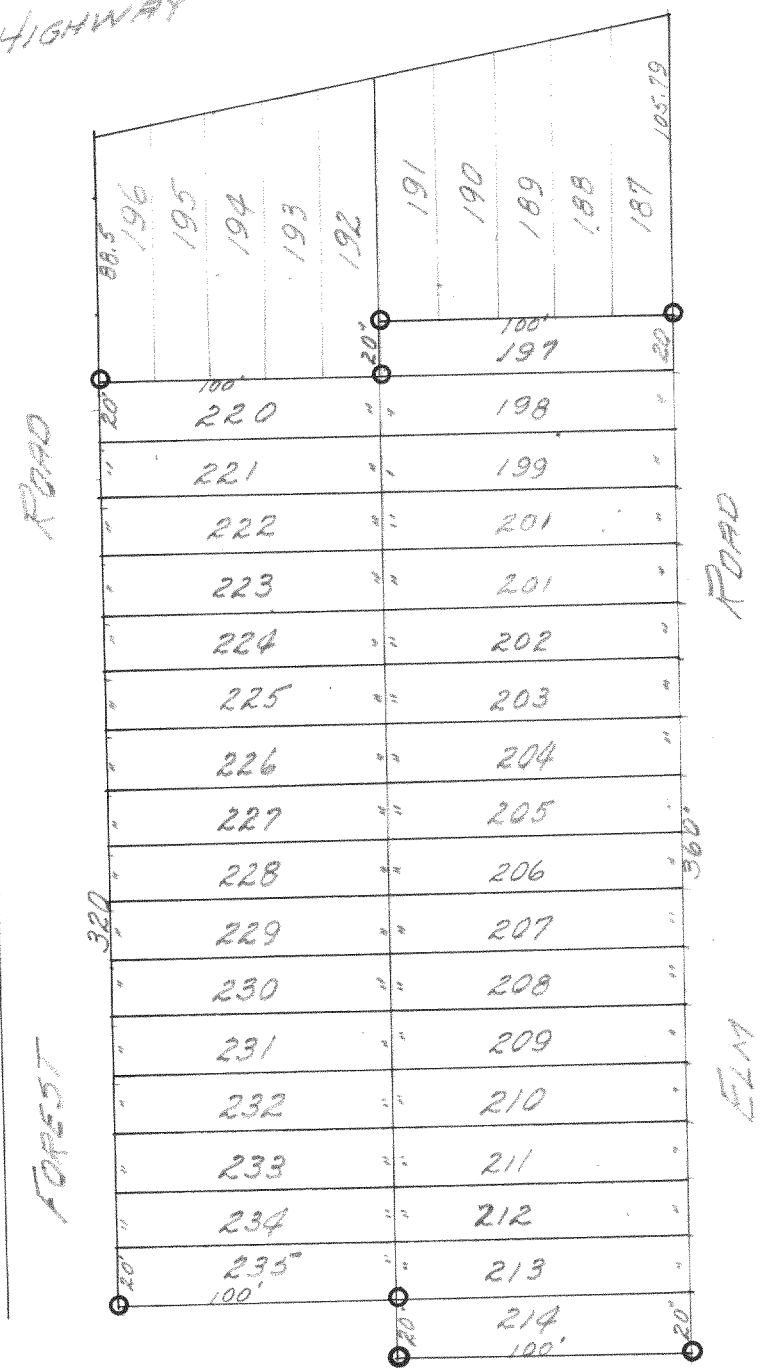 HIGHWAY
196 195 194 193 192 191 190 189 188 187
88.5 105.79
100'
20" 197 20
100'
20' 220 " " 198 "
" 221 " " 199 "
" 222 " " 201 "
" 223 " " 201 "
" 224 " " 202 "
" 225 " " 203 "
" 226 " " 204 "
" 227 " " 205 "
" 228 " " 206 "
" 229 " " 207 "
" 230 " " 208 "
" 231 " " 209 "
" 232 " " 210 "
" 233 " " 211 "
" 234 " " 212 "
20' 235 " " 213 "
100'
20" 214 20"
100'
320
360'
FOREST ROAD
ELM ROAD